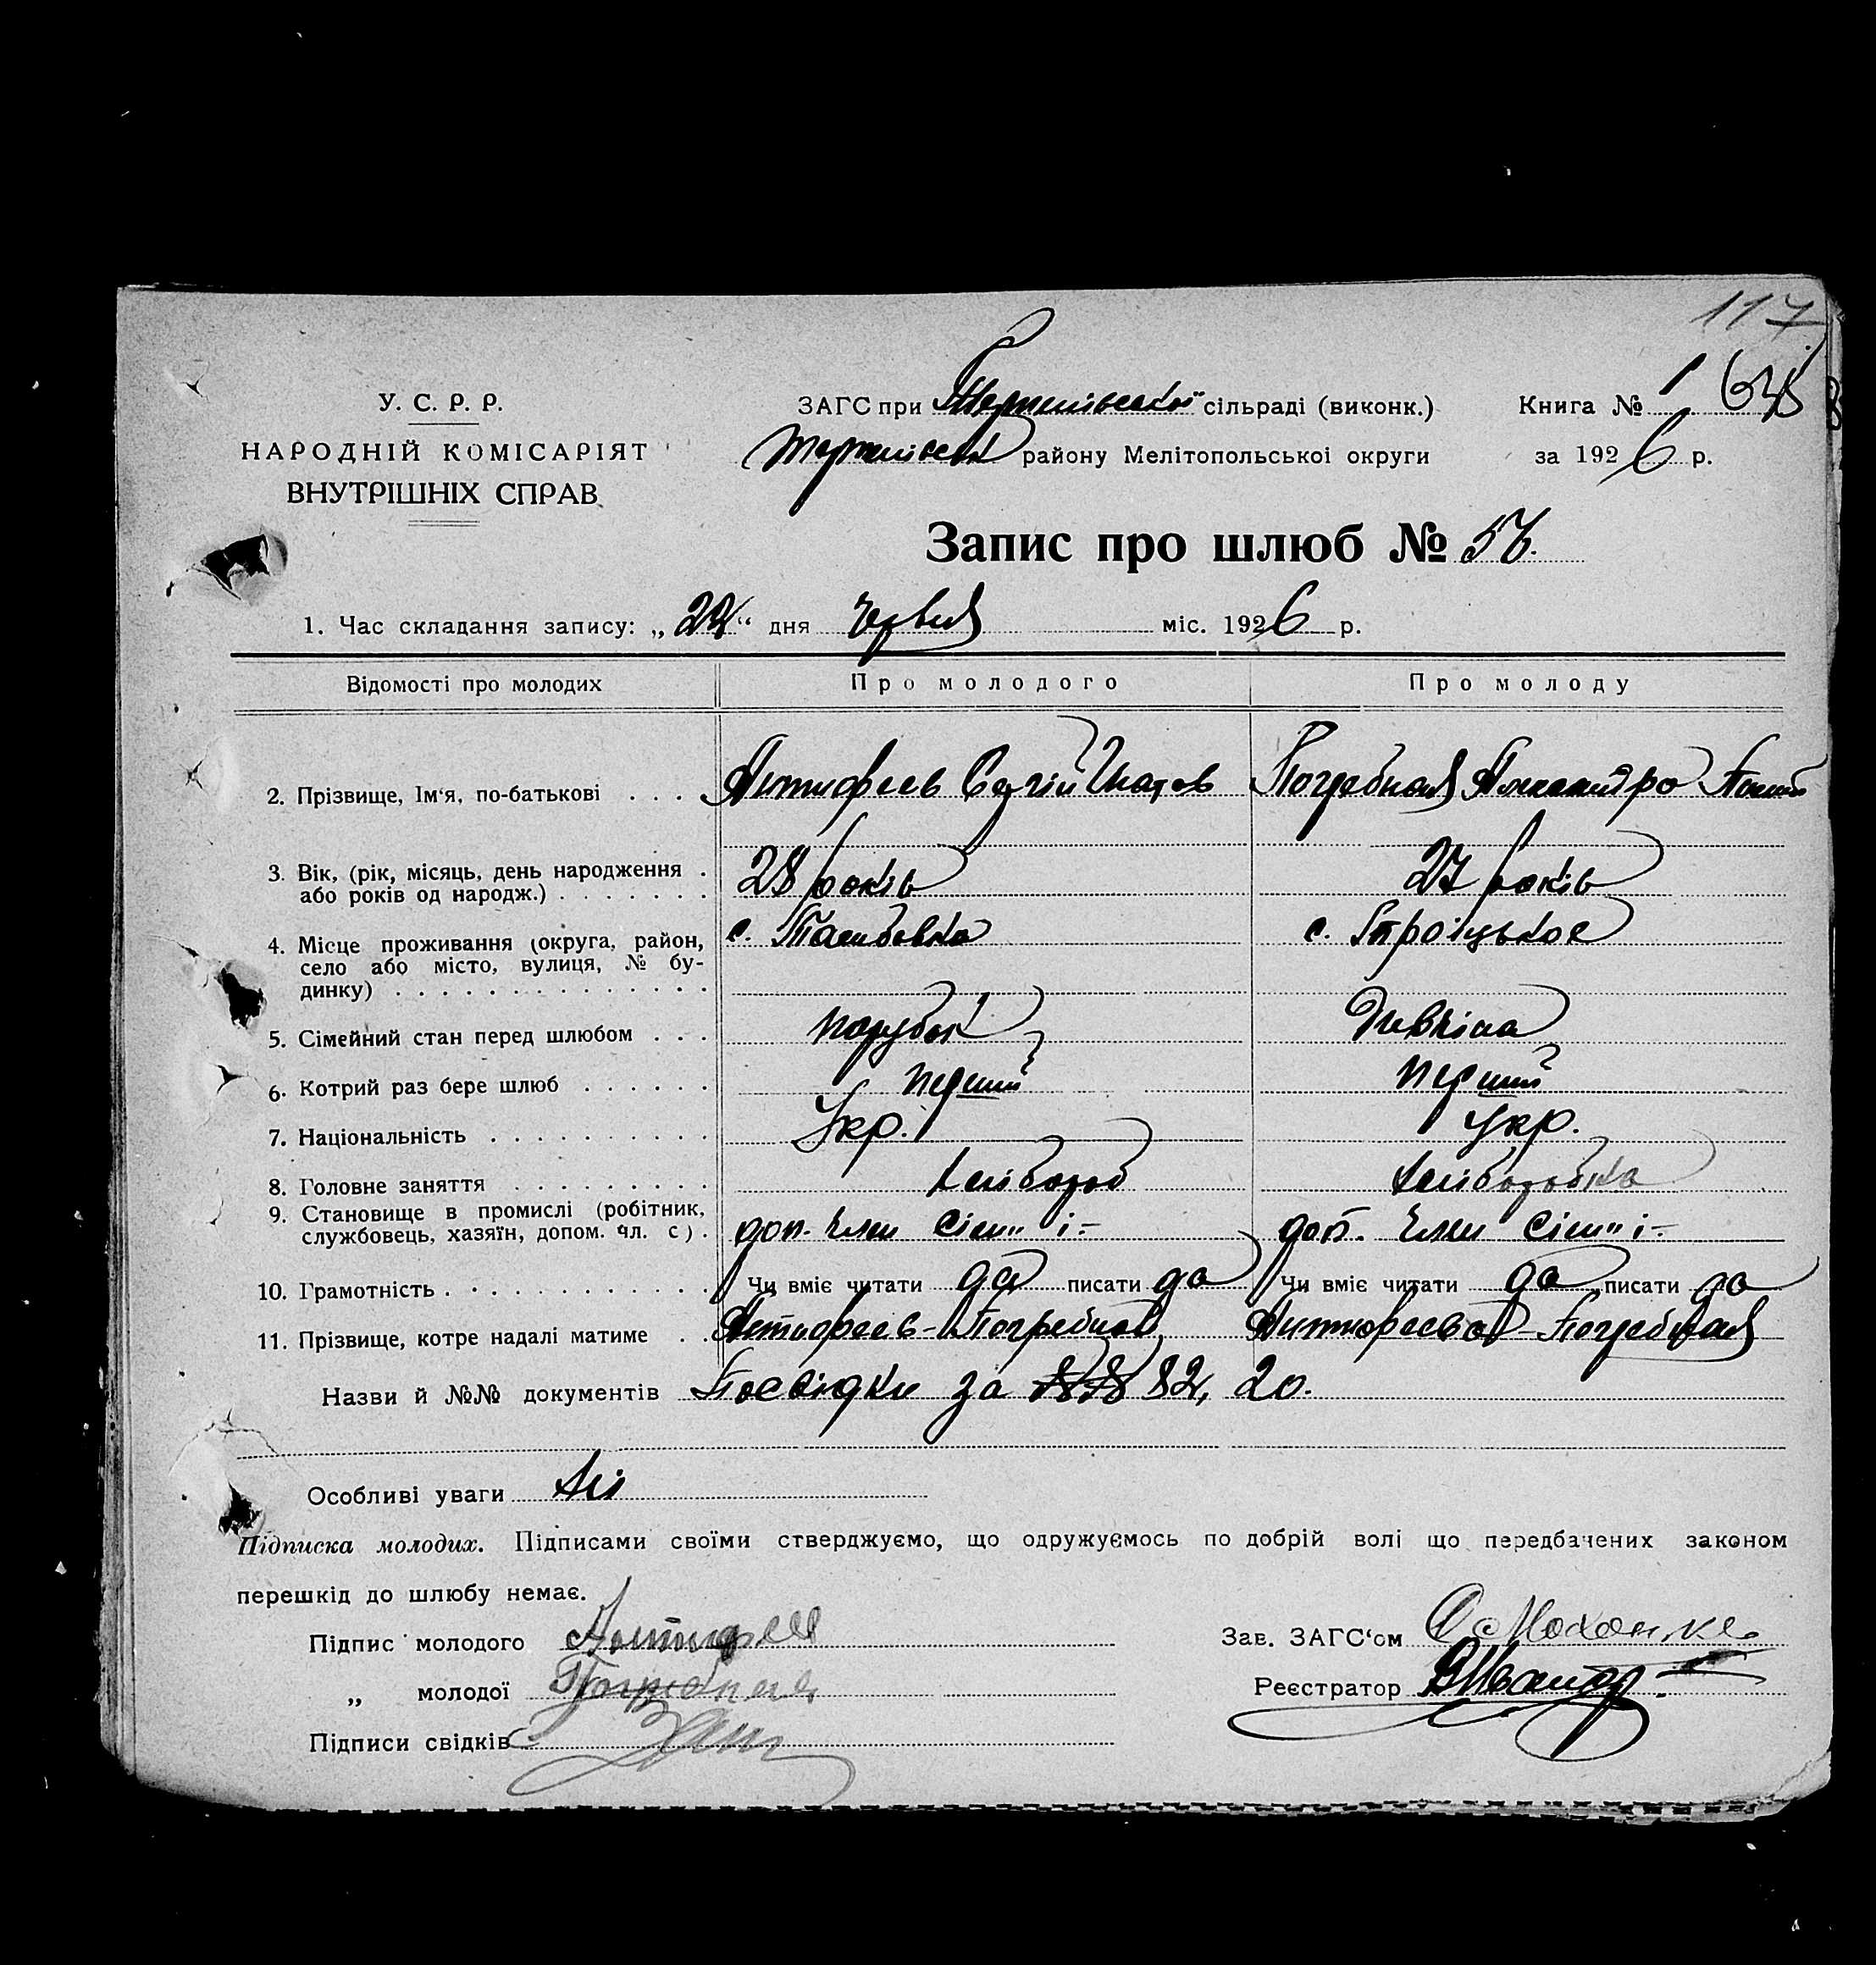 117
У. С. Р. Р.
НАРОДНІЙ КОМІСАРІЯТ
ВНУТРІШНІХ СПРАВ
ЗАГС при сільраді (виконк.)
району Мелітопольської округи
Книга № 1
за 1926 р.
Запис про шлюб № 57.
1. Час складання запису: „ “ дня червня міс. 1926 р.
Відомості про молодих Про молодого Про молоду
2. Прізвище, Ім‘я, по-батькові . . . Антифеев Сергій Игнатов Погребная Александра
3. Вік, (рік, місяць, день народження . 28 років 27 років
або років од народж.) . . . . . . .
4. Місце проживання (округа, район, с. с. Троїцькое
село або місто, вулиця, № бу-
динку) . . . . . . . . . . . . . .
5. Сімейний стан перед шлюбом . . . парубок Дивчіна
6. Котрий раз бере шлюб . . . . . . перший перший
7. Національність . . . . . . . . . . Укр. Укр.
8. Головне заняття . . . . . . . . . хлібороб хліборобка
9. Становище в промислі (робітник,
службовець, хазяїн, допом. чл. с.) . доп. член сім"ї - доп. член сім"ї -
10. Грамотність . . . . . . . . . . . . Чи вміє читати да писати да Чи вміє читати да писати да
11. Прізвище, котре надалі матиме . Антифеев-Погребной Антифеева-Погребная
Назви й №№ документів Посвідки за №№ 82, 20.
Особливі уваги Ні
Підписка молодих. Підписами своїми стверджуємо, що одружуємось по добрій волі що передбачених законом
перешкід до шлюбу немає.
Підпис молодого Антифеев
„ молодої Погребная
Підписи свідків
Зав. ЗАГС‘ом
Реєстратор